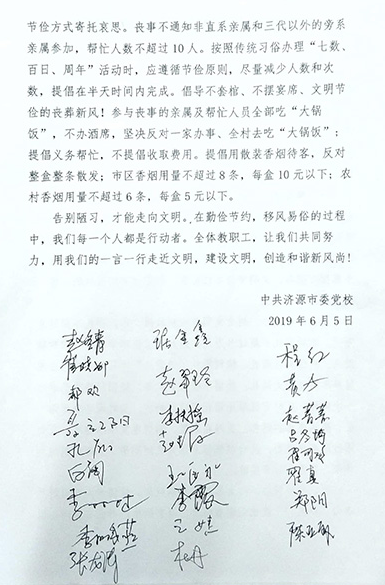 节俭方式寄托哀思。丧事不通知非直系亲属和三代以外的旁系
亲属参加，帮忙人数不超过 10 人。按照传统习俗办理“七数、
百日、周年”活动时，应遵循节俭原则，尽量减少人数和次
数，提倡在半天时间内完成。倡导不套棺、不摆宴席、文明节
俭的丧葬新风！参与丧事的亲属及帮忙人员全部吃“大锅
饭”，不办酒席，坚决反对一家办事、全村去吃“大锅饭”；
提倡义务帮忙，不提倡收取费用。提倡用散装香烟待客，反对
整盒整条散发；市区香烟用量不超过 8 条，每盒 10 元以下；农
村香烟用量不超过 6 条，每盒 5 元以下。
告别陋习，才能走向文明。在勤俭节约，移风易俗的过程
中，我们每一个人都是行动者。全体教职工，让我们共同努
力，用我们的一言一行走近文明，建设文明，创造和谐新风尚！
中共济源市委党校
2019 年 6 月 5 日
程红
郝欢
赵翠玲
黄方
李扶摇
赵菁菁
白润
翟真
李霞
郑阳
王婧
杜丹